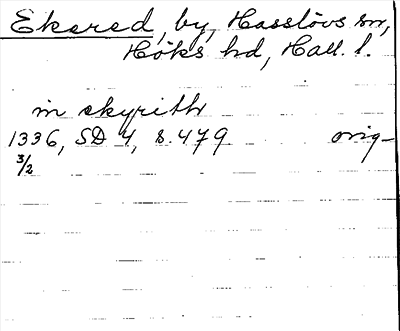 Ekered, by, Hasslövs sn,
Höks hd, Hall. l.
in ekyrith
1336, SD 4, s. 479 orig
3/2